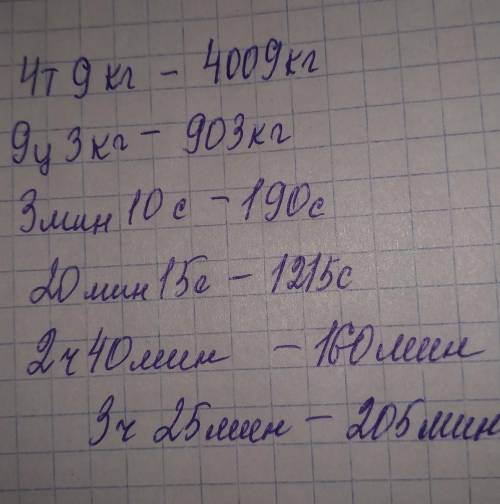 4т 9 кг – 4009 кг
9ц 3 кг – 903 кг
3 мин 10 с – 190 с
20 мин 15 с – 1215 с
2 ч 40 мин – 160 мин
3 ч 25 мин – 205 мин